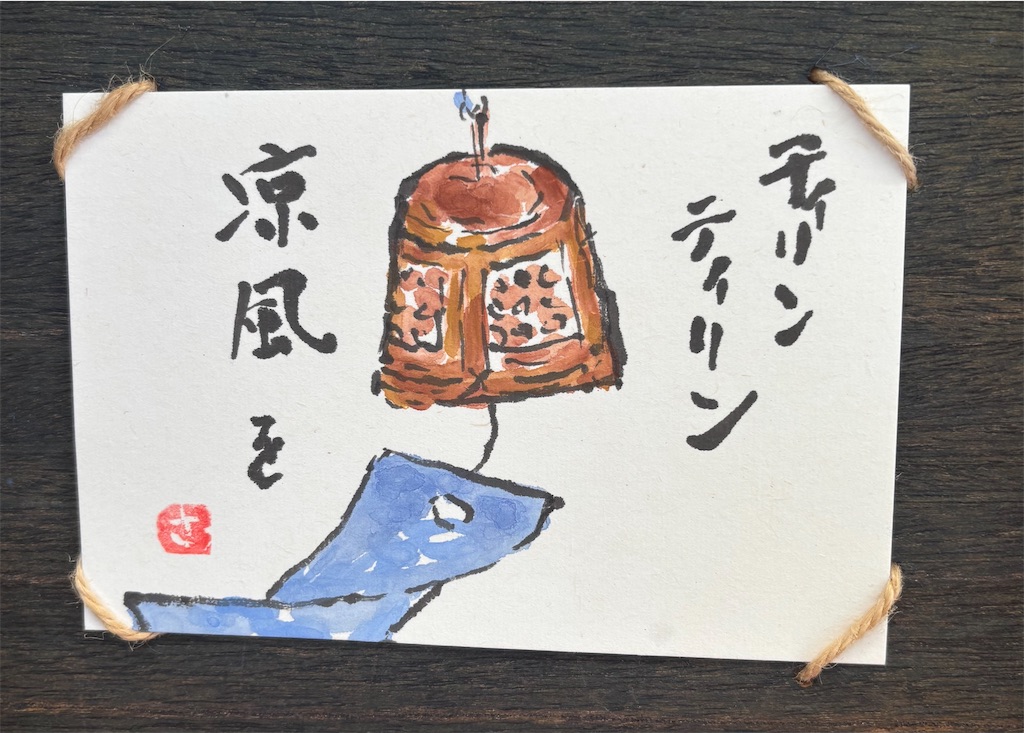 ティリン
ティリン
涼風を